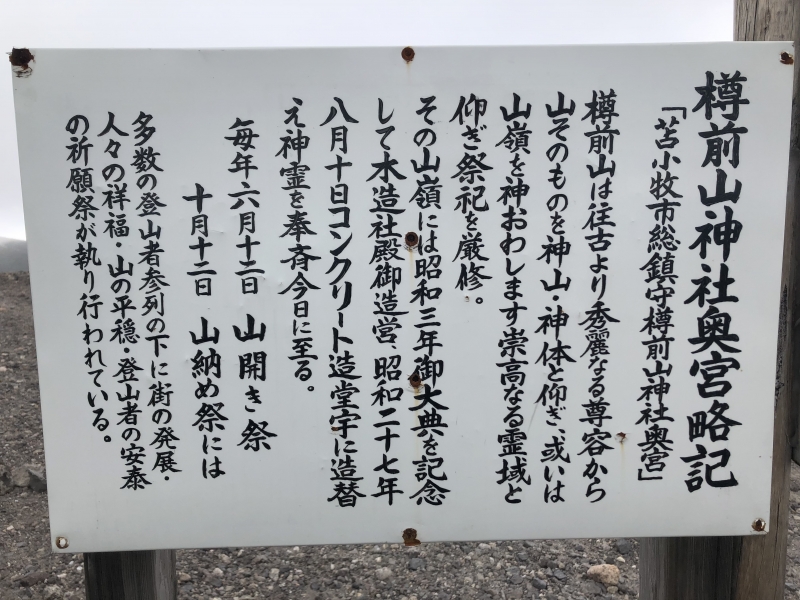 樽前山神社奥宮略記
「苫小牧市総鎮守樽前山神社奥宮」
樽前山は往古より秀麗なる尊容から
山そのものを神山・神体と仰ぎ、或いは
山嶺を神おわします崇高なる霊域と
仰ぎ祭祀を厳修。
その山嶺には昭和三年御大典を記念
して木造社殿御造営、昭和二十七年
八月十日コンクリート造堂宇に造替
え神霊を奉斉今日に至る。
毎年六月十二日 山開き祭
十月十二日 山納め祭には
多数の登山者参列の下に街の発展・
人々の祥福・山の平穏・登山者の安泰
の祈願祭が執り行われている。